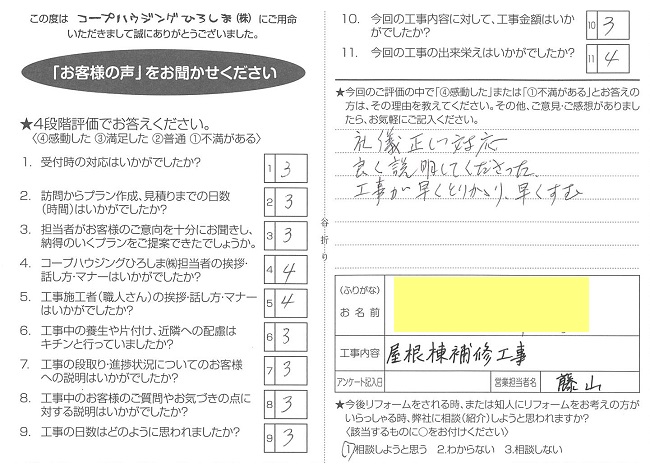 この度は コープハウジングひろしま(株) にご用命
いただきまして誠にありがとうございました。
「お客様の声」をお聞かせください
★4段階評価でお答えください。
〈④感動した ③満足した ②普通 ①不満がある〉
1. 受付時の対応はいかがでしたか? 1 3
2. 訪問からプラン作成、見積りまでの日数
(時間)はいかがでしたか? 2 3
3. 担当者がお客様のご意向を十分にお聞きし、
納得のいくプランをご提案できたでしょうか。 3 3
4. コープハウジングひろしま㈱担当者の挨拶・
話し方・マナーはいかがでしたか? 4 4
5. 工事施工者(職人さん)の挨拶・話し方・マナー
はいかがでしたか? 5 4
6. 工事中の養生や片付け、近隣への配慮は
キチンと行っていましたか? 6 3
7. 工事の段取り・進捗状況についてのお客様
への説明はいかがでしたか? 7 3
8. 工事中のお客様のご質問やお気づきの点に
対する説明はいかがでしたか? 8 3
9. 工事の日数はどのように思われましたか? 9 3
谷折り
10. 今回の工事内容に対して、工事金額はいか
がでしたか? 10 3
11. 今回の工事の出来栄えはいかがでしたか? 11 4
★今回のご評価の中で「④感動した」または「①不満がある」とお答えの
方は、その理由を教えてください。その他、ご意見・ご感想がありまし
たら、お気軽にご記入ください。
礼儀正しい対応
良く説明してくださった。
工事が早くとりかかり、早くすむ
〈ふりがな〉
お名前
工事内容 屋根棟補修工事
アンケート記入日 営業担当者名 藤山
★今後リフォームをされる時、または知人にリフォームをお考えの方が
いらっしゃる時、弊社に相談(紹介)しようと思われますか?
〈該当するものに○をお付けください〉
1.相談しようと思う 2.わからない 3.相談しない